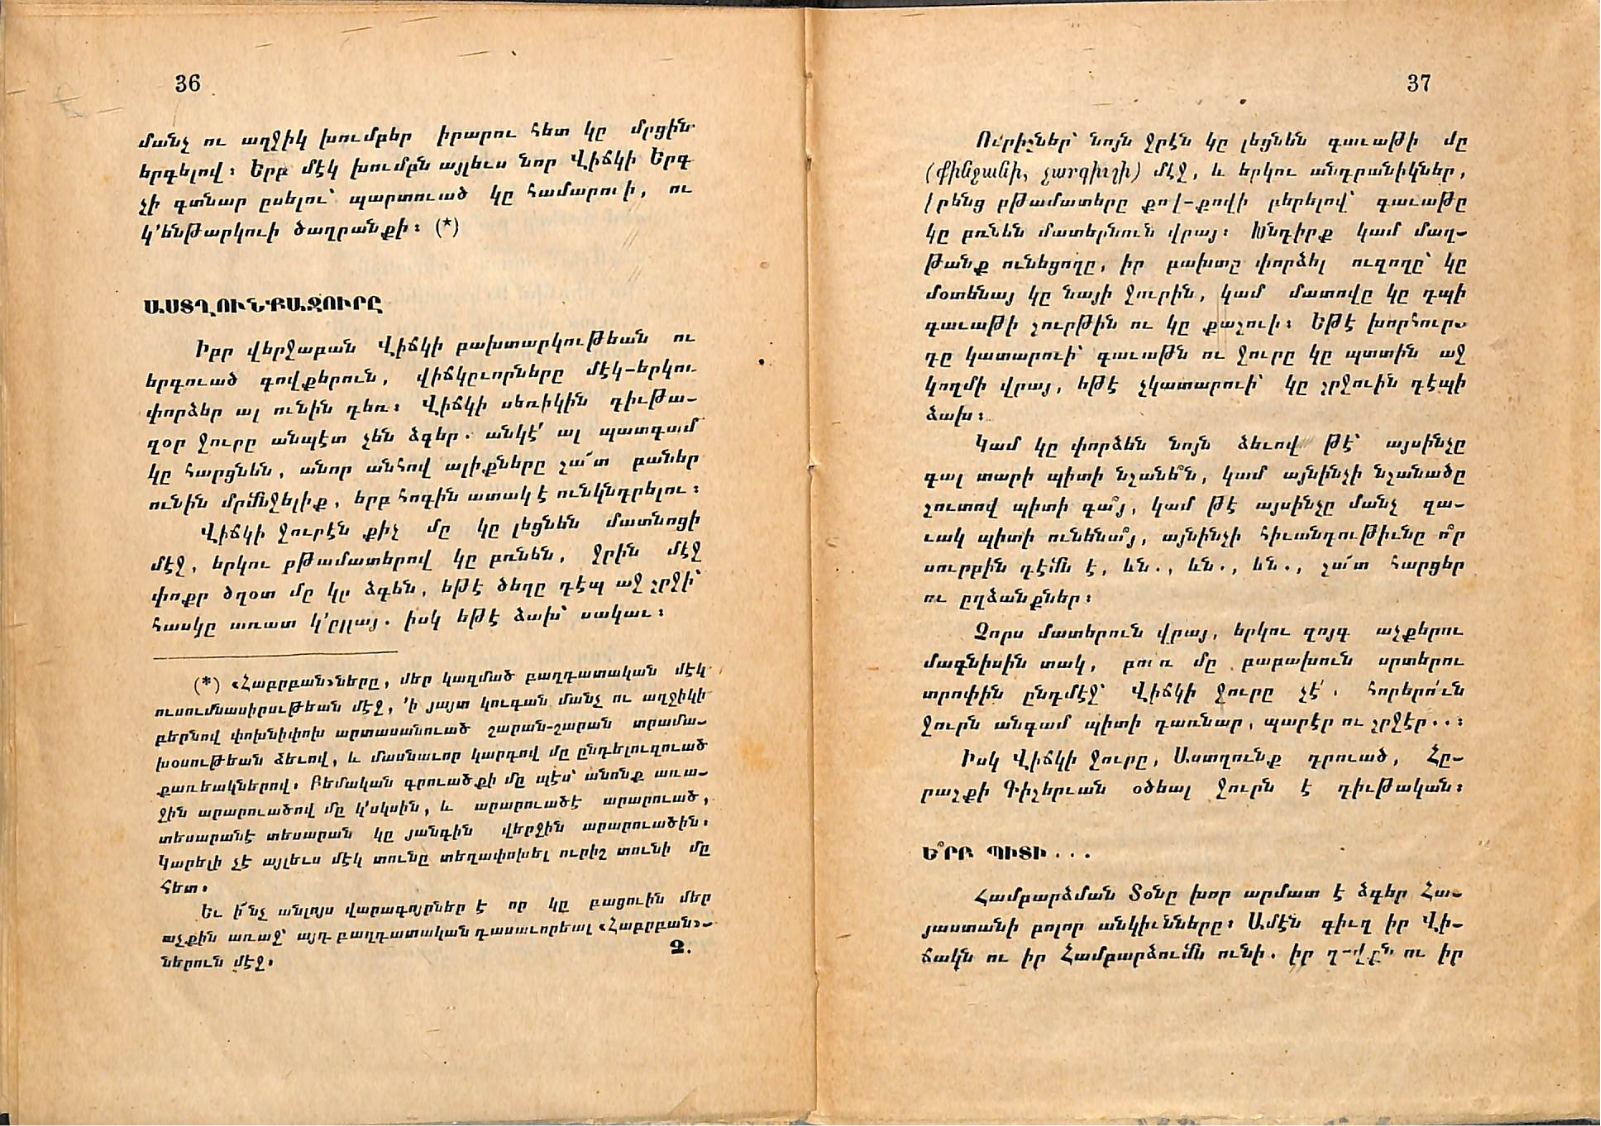 36
մանչ ու աղջիկ խումբեր իրարու հետ կը մրցին
երգելով։ Երբ մէկ խումբն այլեւս նոր Վիճկի Երգ
չի գտնար ըսելու՝ պարտուած կը համարուի, ու
կ՚ենթարկուի ծաղրանքի։ (*)
ԱՍՏՂՈՒՆՔԱՋՈՒՐԸ
Իբր վերջաբան Վիճկի բախտարկութեան ու
երգուած գովքերուն, վիճկըւորները մէկ-երկու
փորձեր ալ ունին դեռ։ Վիճկի սեռիկին դիւթա-
զօր ջուրը անպէտ չեն ձգեր. անկէ՛ ալ պատգամ
կը հարցնեն, անոր անհով ալիքները շա՜տ բաներ
ունին մրմնջելիք, երբ հոգին ատակ է ունկնդրելու։
Վիճկի ջուրէն քիչ մը կը լեցնեն մատնոցի
մէջ, երկու բթամատերով կը բռնեն, ջրին մէջ
փոքր ծղօտ մը կը ձգեն, եթէ ծեղը դէպ աջ շրջի՝
հասկը առատ կ՚ըլլայ. իսկ եթէ ձախ՝ սակաւ։
(*) «Հաբրբան»ները, մեր կազմած բաղդատական մէկ
ուսումնասիրութեան մէջ, ՚ի յայտ կուգան մանչ ու աղջիկի
բերնով փոխնիփոխ արտասանուած շարան-շարան տրամա-
խօսութեան ձեւով, և մասնաւոր կարգով մը ընդելուզուած
քառեակներով. Բեմական գրուածքի մը պէս՝ անոնք առա-
ջին արարուածով մը կ՚սկսին, և արարուածէ արարուած,
տեսարանէ տեսարան կը յանգին վերջին արարուածին.
Կարելի չէ այլեւս մէկ տունը տեղափոխել ուրիշ տունի մը
հետ.
Եւ ի՜նչ անլոյս վարագոյրներ է որ կը բացուին մեր
աչքին առաջ՝ այդ բաղդատական դասաւորեալ «Հաբրբան»-
ներուն մէջ.
Զ.
37
Ուրիշներ՝ նոյն ջրէն կը լեցնեն գաւաթի մը
(ֆինջանի, չարգիւշի) մէջ, և երկու անդրանիկներ,
իրենց բթամատերը քով-քովի բերելով՝ գաւաթը
կը բռնեն մատերնուն վրայ։ Խնդիրք կամ մաղ-
թանք ունեցողը, իր բախտը փորձել ուզողը՝ կը
մօտենայ կը նայի ջուրին, կամ մատովը կը դպի
գաւաթի շուրթին ու կը քաշուի։ Եթէ խորհուր-
դը կատարուի՝ գաւաթն ու ջուրը կը պտտին աջ
կողմի վրայ, եթէ չկատարուի՝ կը շրջուին դէպի
ձախ։
Կամ կը փորձեն նոյն ձեւով թէ՝ այսինչը
գալ տարի պիտի նշանե՞ն, կամ այնինչի նշանածը
շուտով պիտի գա՞յ, կամ թէ այսինչը մանչ զա-
ւակ պիտի ունենա՞յ, այնինչի հիւանդութիւնը ո՞ր
սուրբին դէմն է, ևն., ևն., ևն., շա՜տ հարցեր
ու ըղձանքներ։
Չորս մատերուն վրայ, երկու զոյգ աչքերու
մագնիսին տակ, բուռ մը բաբախուն սրտերու
տրոփին ընդմէջ՝ Վիճկի ջուրը չէ՛. հորերո՛ւն
ջուրն անգամ պիտի դառնար, պարէր ու շրջէր..։
Իսկ Վիճկի ջուրը, Աստղունք դրուած, Հը-
րաշքի Գիշերւան օծեալ ջուրն է դիւթական։
Ե՞ՐԲ ՊԻՏԻ...
Համբարձման Տօնը խոր արմատ է ձգեր Հա-
յաստանի բոլոր անկիւնները։ Ամէն գիւղ իր Վի-
ճակն ու իր Համբարձումն ունի. իր ու իր